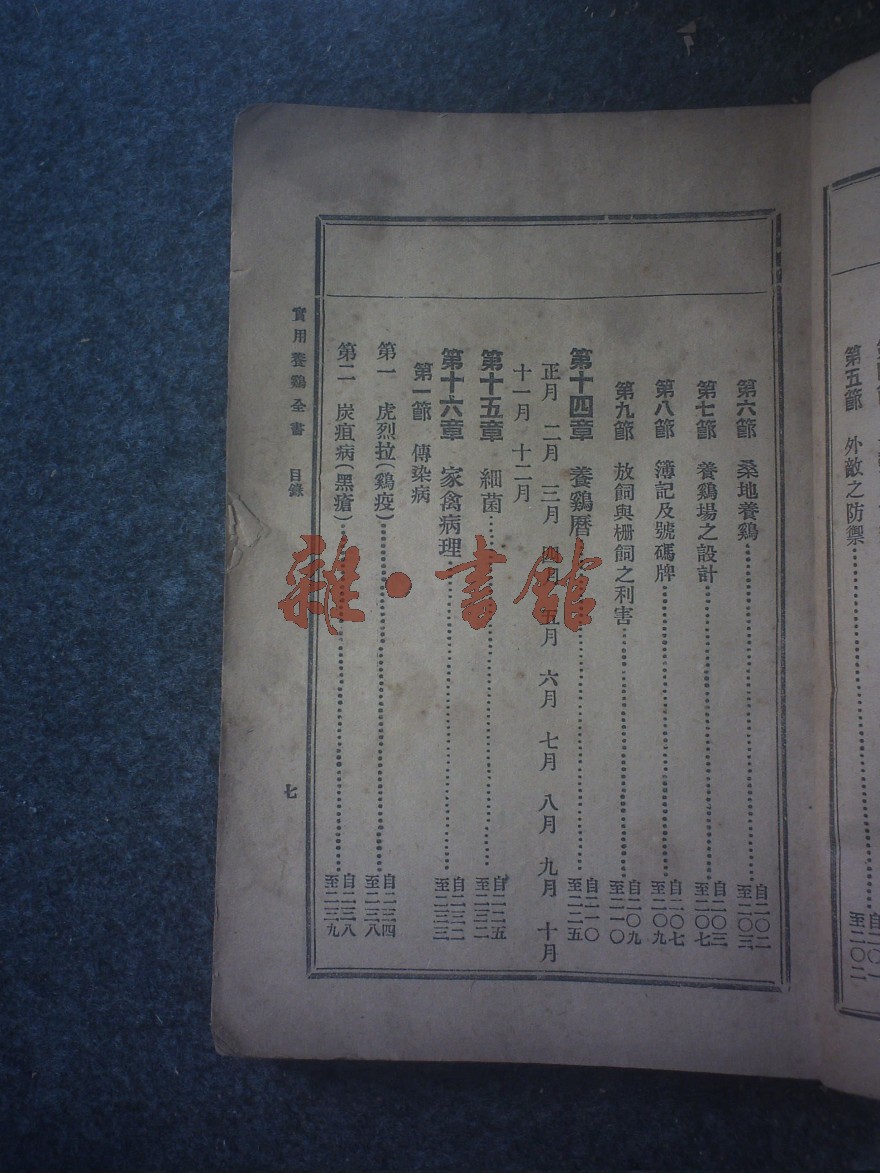 第五節　外敵之防禦
至二〇二
第六節　桑地養鷄
自二〇二
至二〇三
第七節　養鷄場之設計
自二〇三
至二〇七
第八節　簿記及號碼牌
自二〇七
至二〇九
第九節　放飼與柵飼之利害
自二〇九
至二一〇
第十四章　養鷄曆
自二一〇
至二二五
正月　二月　三月　四月　五月　六月　七月　八月　九月　十月
十一月　十二月
第十五章　細菌
自二二五
至二三二
第十六章　家禽病理
自二三二
至二三三
第一節　傳染病
第一　虎烈拉(鷄疫)
自二三四
至二三八
第二　炭疽病(黑瘡)
自二三八
至二三九
實用養鷄全書　目錄
七
雜·書館